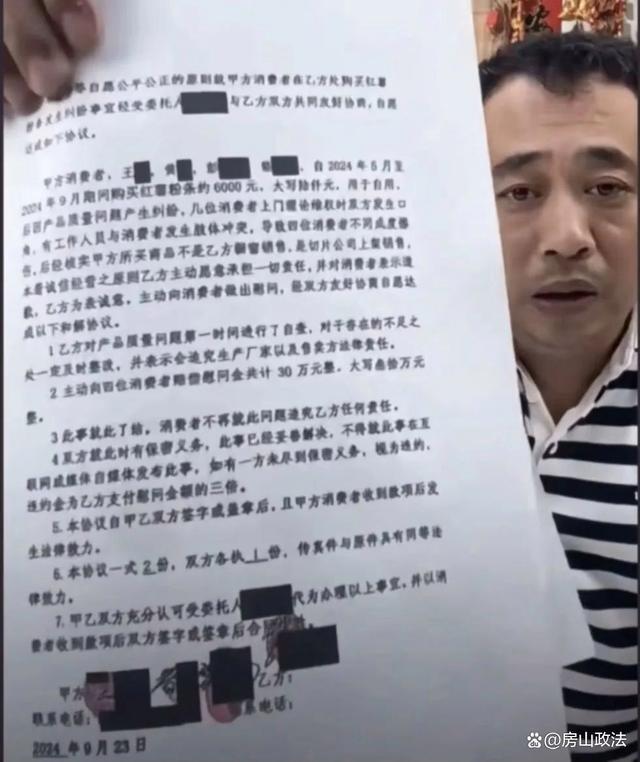 等自愿公平公正的原则就甲方消费者在乙方处购买红薯
粉条发生纠纷事宜经受委托人 与乙方双方共同友好协商,自愿
达成如下协议。
甲方消费者,王 、黄 、彭 、 ,自2024年5月至
2024年9月期间购买红薯粉条约6000元,大写陆仟元,用于自用,
后因产品质量问题产生纠纷,几位消费者上门理论维权时双方发生口
角,有工作人员与消费者发生肢体冲突,导致四位消费者不同成度修
伤,后经核实甲方所买商品不是乙方橱窗销售,是切片公司上架销售,
本着诚信经营之原则乙方主动愿意承担一切责任,并对消费者表示道
歉,乙方为表诚意,主动向消费者做出慰问,经双方友好协商自愿达
成以下和解协议。
1乙方对产品质量问题第一时间进行了自查,对于存在的不足之
处一定及时整改,并表示会追究生产厂家以及售卖方法律责任。
2主动向四位消费者赔偿慰问金共计30万元整,大写叁拾万元
整。
3此事就此了结,消费者不再就此问题追究乙方任何责任。
4双方就此时有保密义务,此事已经妥善解决,不得就此事在互
联网或媒体自媒体发布此事,如有一方未尽到保密义务,视为违约,
违约金为乙方支付慰问金额的三倍。
5.本协议自甲乙双方签字或盖章后,且甲方消费者收到款项后发
生法律效力。
6.本协议一式2份,双方各执1份,传真件与原件具有同等法
律效力。
7.甲乙双方充分认可受委托人 代为办理以上事宜,并以消
费者收到款项后双方签字或签章后合同
甲方 乙方:
联系电话: 联系电话:
2024年9月23日
@房山政法